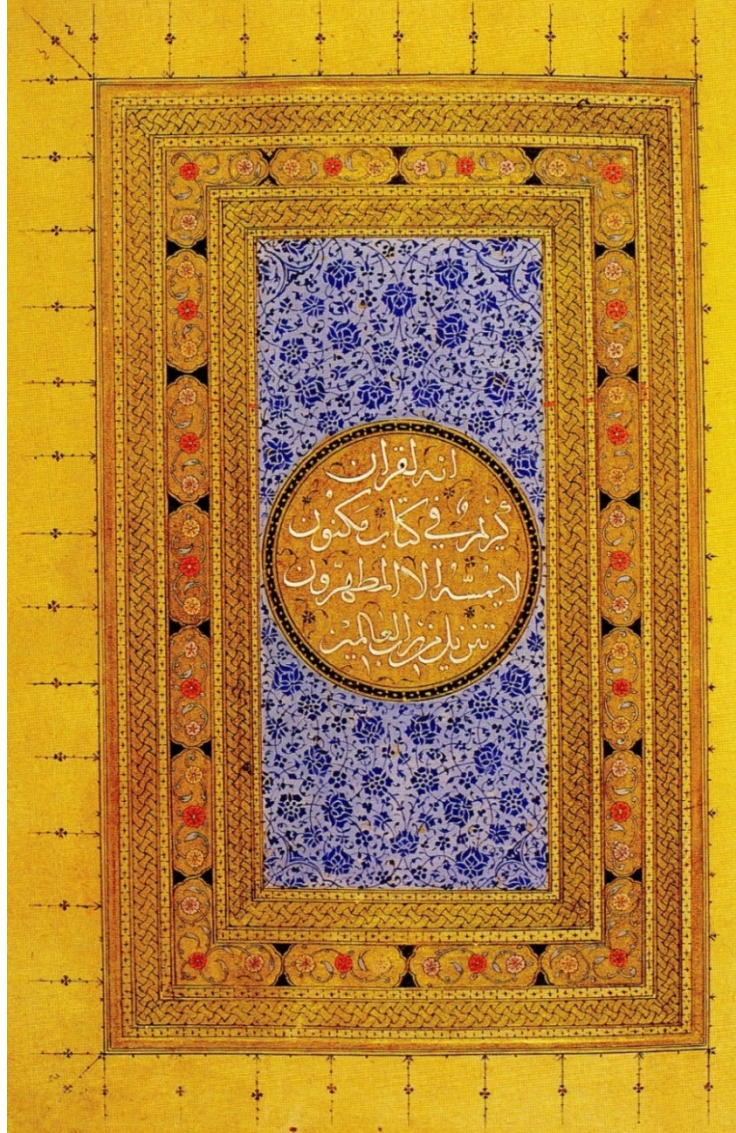 انه لقران
كَرِيْمٌ في كتاب مكنون
لا يمسّه الا المطهّرون
تنزيل من رب العالمين